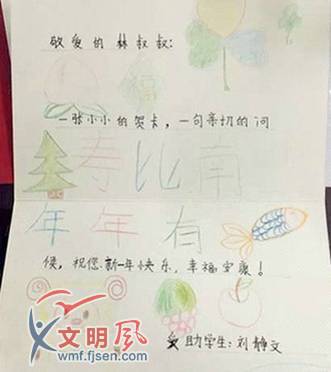 敬爱的林叔叔：
一张小小的贺卡，一句亲切的问
寿比南
年年有
候，祝您新一年快乐，幸福安康！
受助学生：刘静文
文明风
wmf.fjsen.com